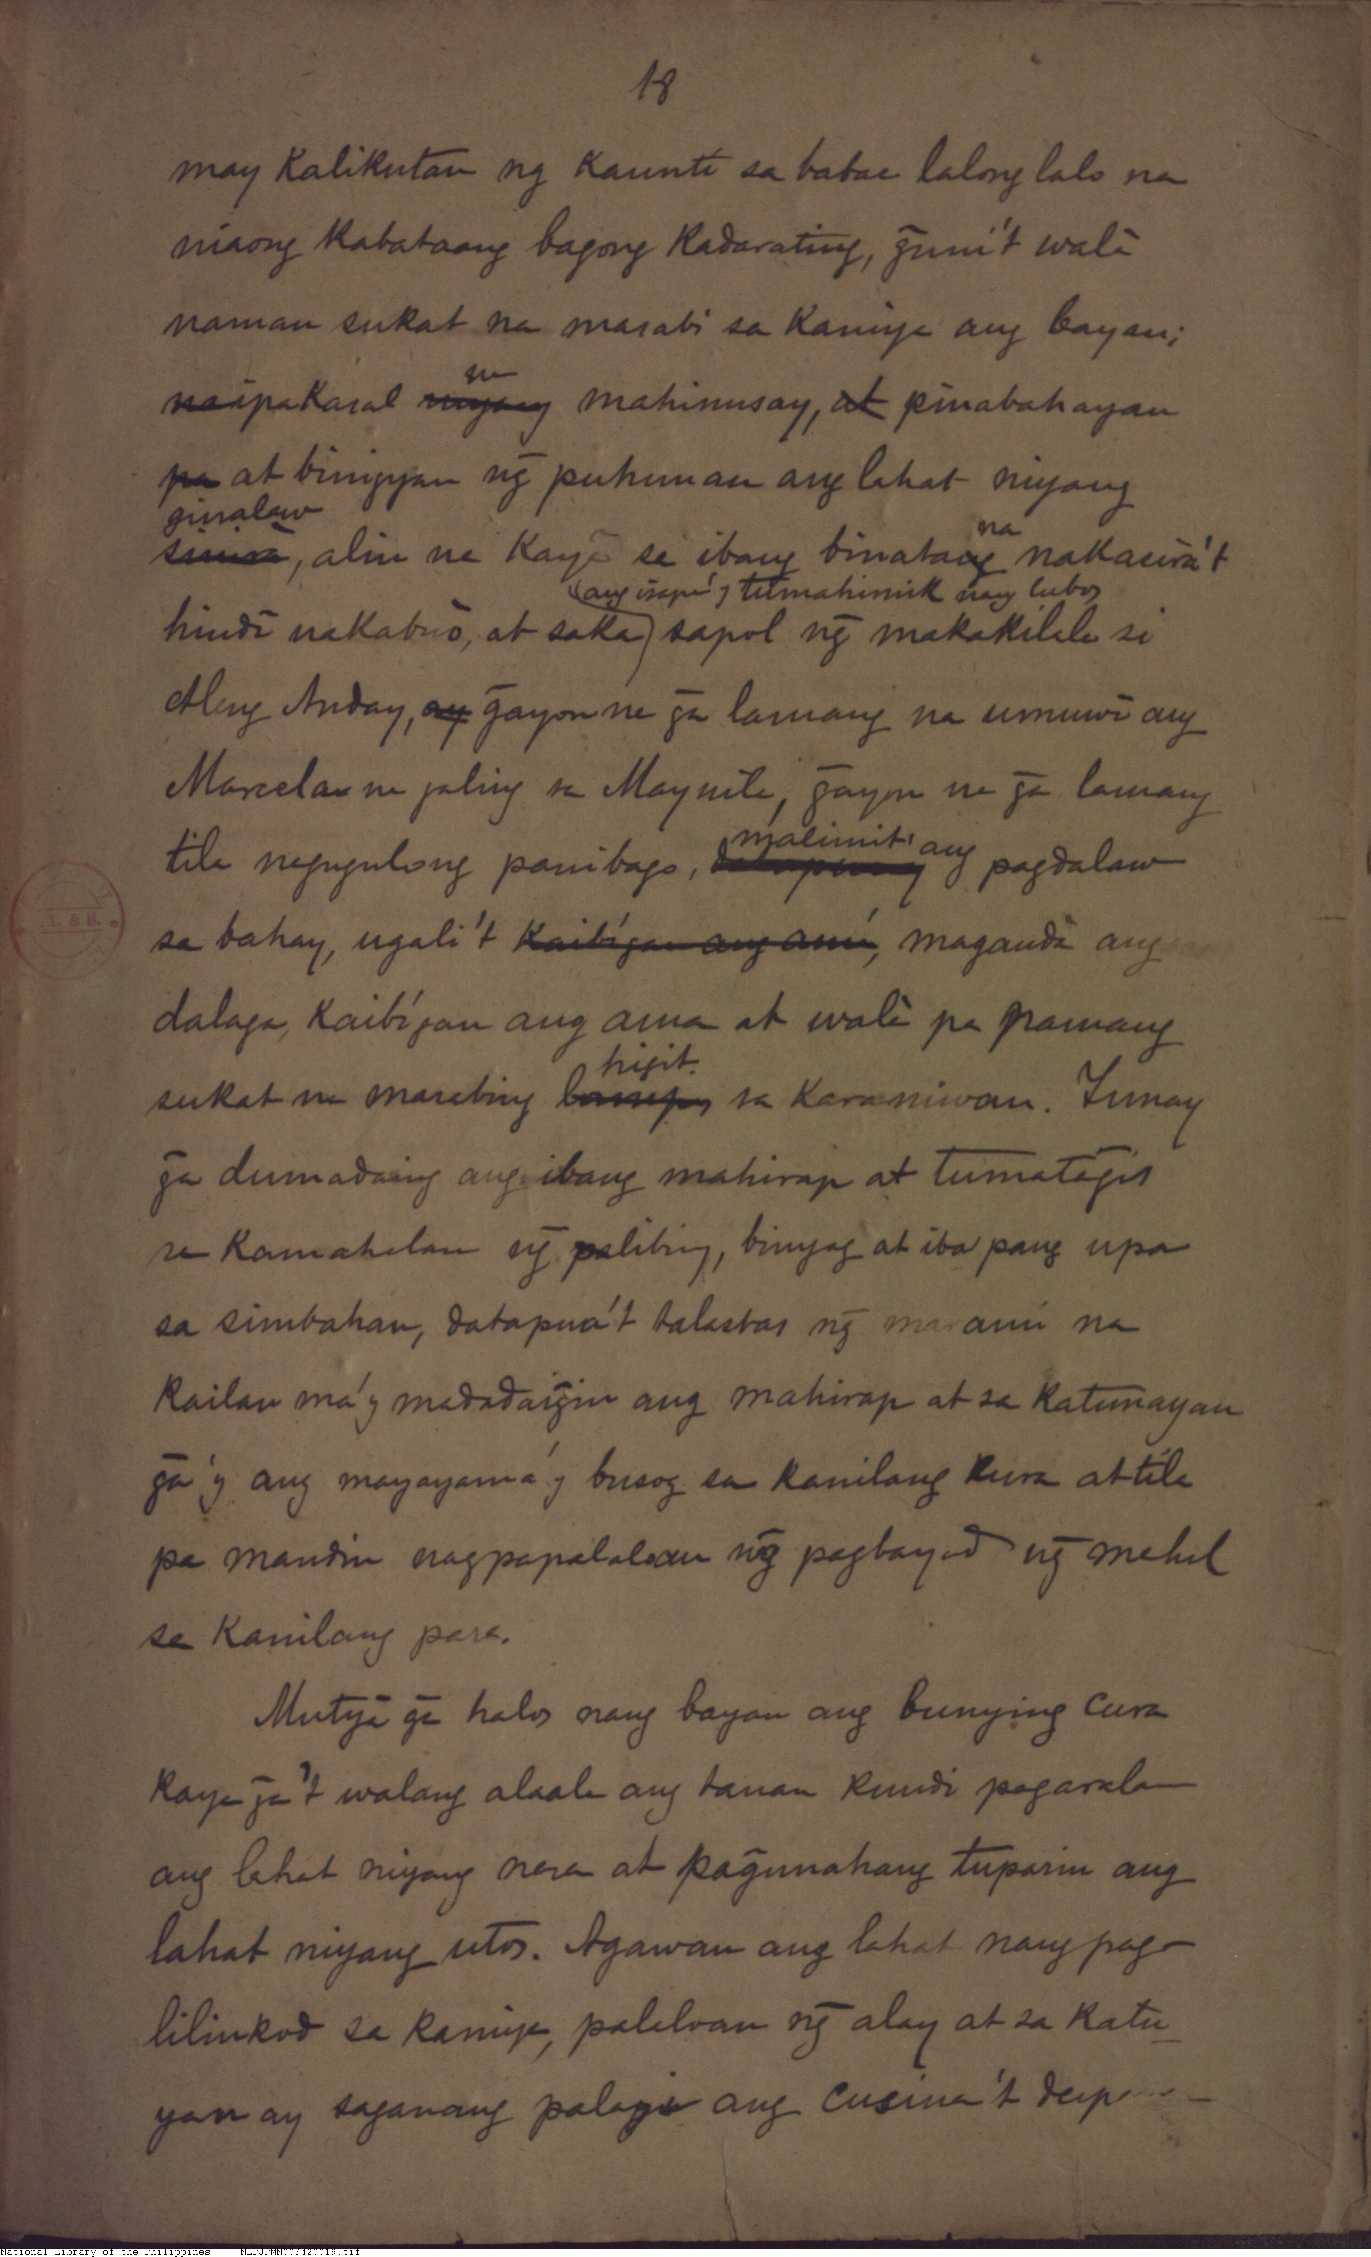 18
may kalikutan ng kaunti sa babae lalong lalo na
niaong kabataang bagong kadarating, g̃uni't walâ
naman sukat na masabi sa kaniya ang bayan;
naipakasal niyang na mahinusay, at pinabahayan
pa at binigyan ng̃ puhunan ang lahat niyang
ginalaw
sinirà, alin na kayâ sa ibang binatang na nakasirà't
(ang isapa'y tumahimik nang lubos
hindî nakabuò, at saka) sapol ng̃ makakilala si
Aling Anday, ay g̃ayon na g̃a lamang na umuwî ang
Marcela na galing sa Maynila, g̃ayon na g̃a lamang
tila nagugulong panibago, malimit ang pagdalaw
sa bahay, ugali't kaibígan ang amá, magandà ang
dalaga, kaibígan ang ama at walâ pa namang
higit
sukat na masabing sa karaniwan. Tunay
g̃a dumadaing ang ibang mahirap at tumatag̃is
sa kamahalan ng̃ palibing, binyag at iba pang upa
sa simbahan, datapua't talastas ng̃ marami na
kailan ma'y madadaig̃in ang mahirap at sa katunayan
g̃a'y ang mayayama'y busog sa kanilang kura at tila
pa mandin nagpapalaloan ng̃ pagbayad ng̃ mahal
sa kanilang para.
Mutyâ g̃a halos nang bayan ang bunying cura
kaya g̃a't walang alaala ang tanan kundi pagaralan
ang lahat niyang nasa at pag̃unahang tuparin ang
lahat niyang utos. Agawan ang lahat nang pag-
lilinkod sa kaniya, palaloan ng̃ alay at sa katu-
yan ay saganang palagi ang cusina't